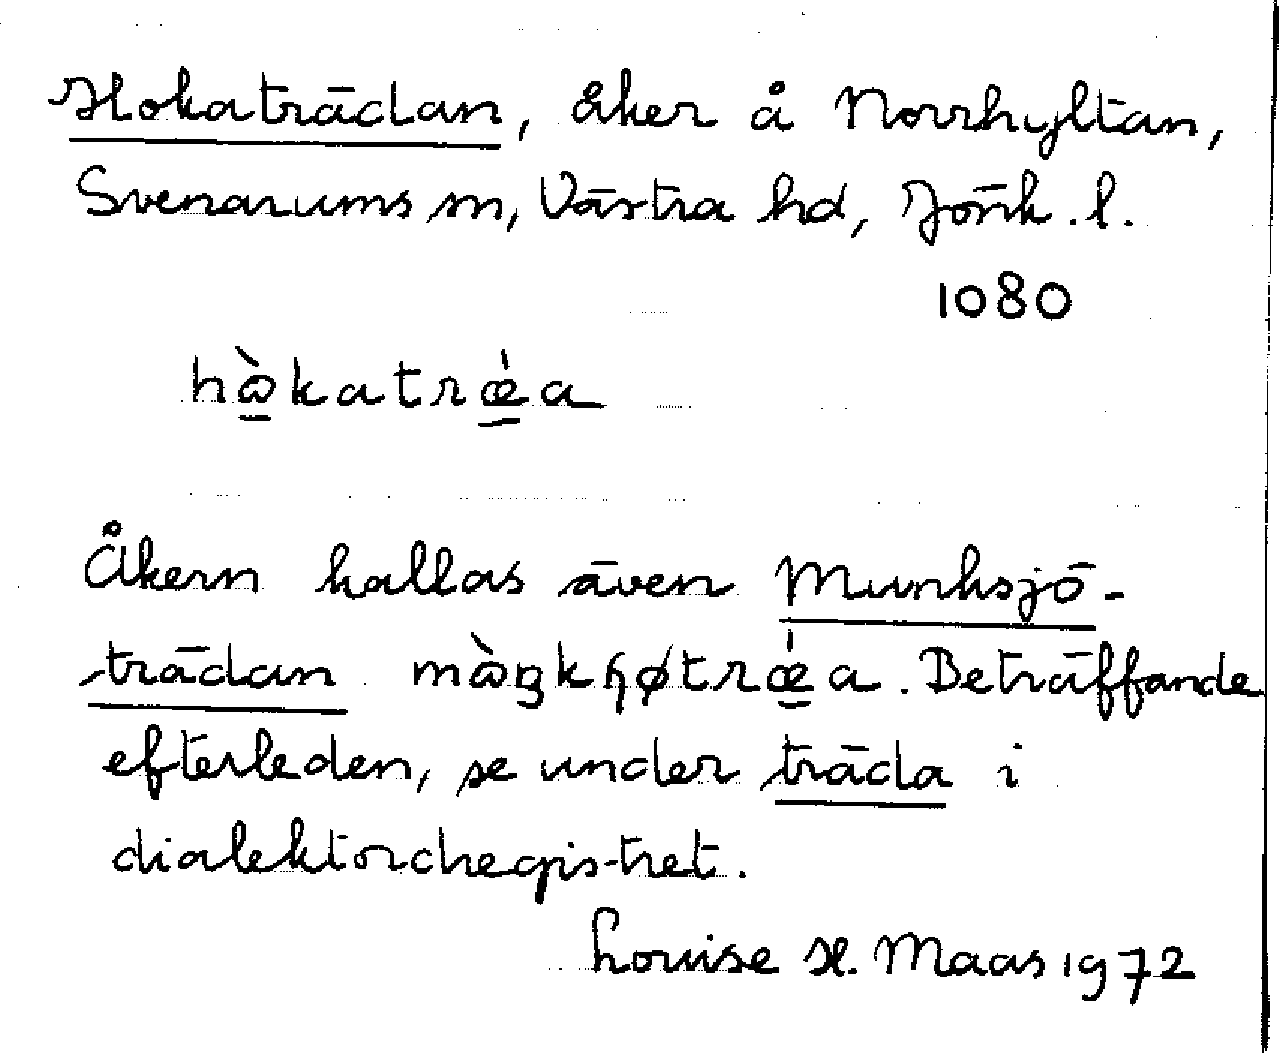 Hokaträdan, åker å Norrhyltan,
Svenarums sn, Västra hd, Jönk. l.
1080
hὼkatrǽa
Åkern kallas även Munksjö-
trädan mὼŋkɧøtrǽa. Beträffande
efterleden, se under träda i
dialektordregistret.
Louise H. Maas 1972